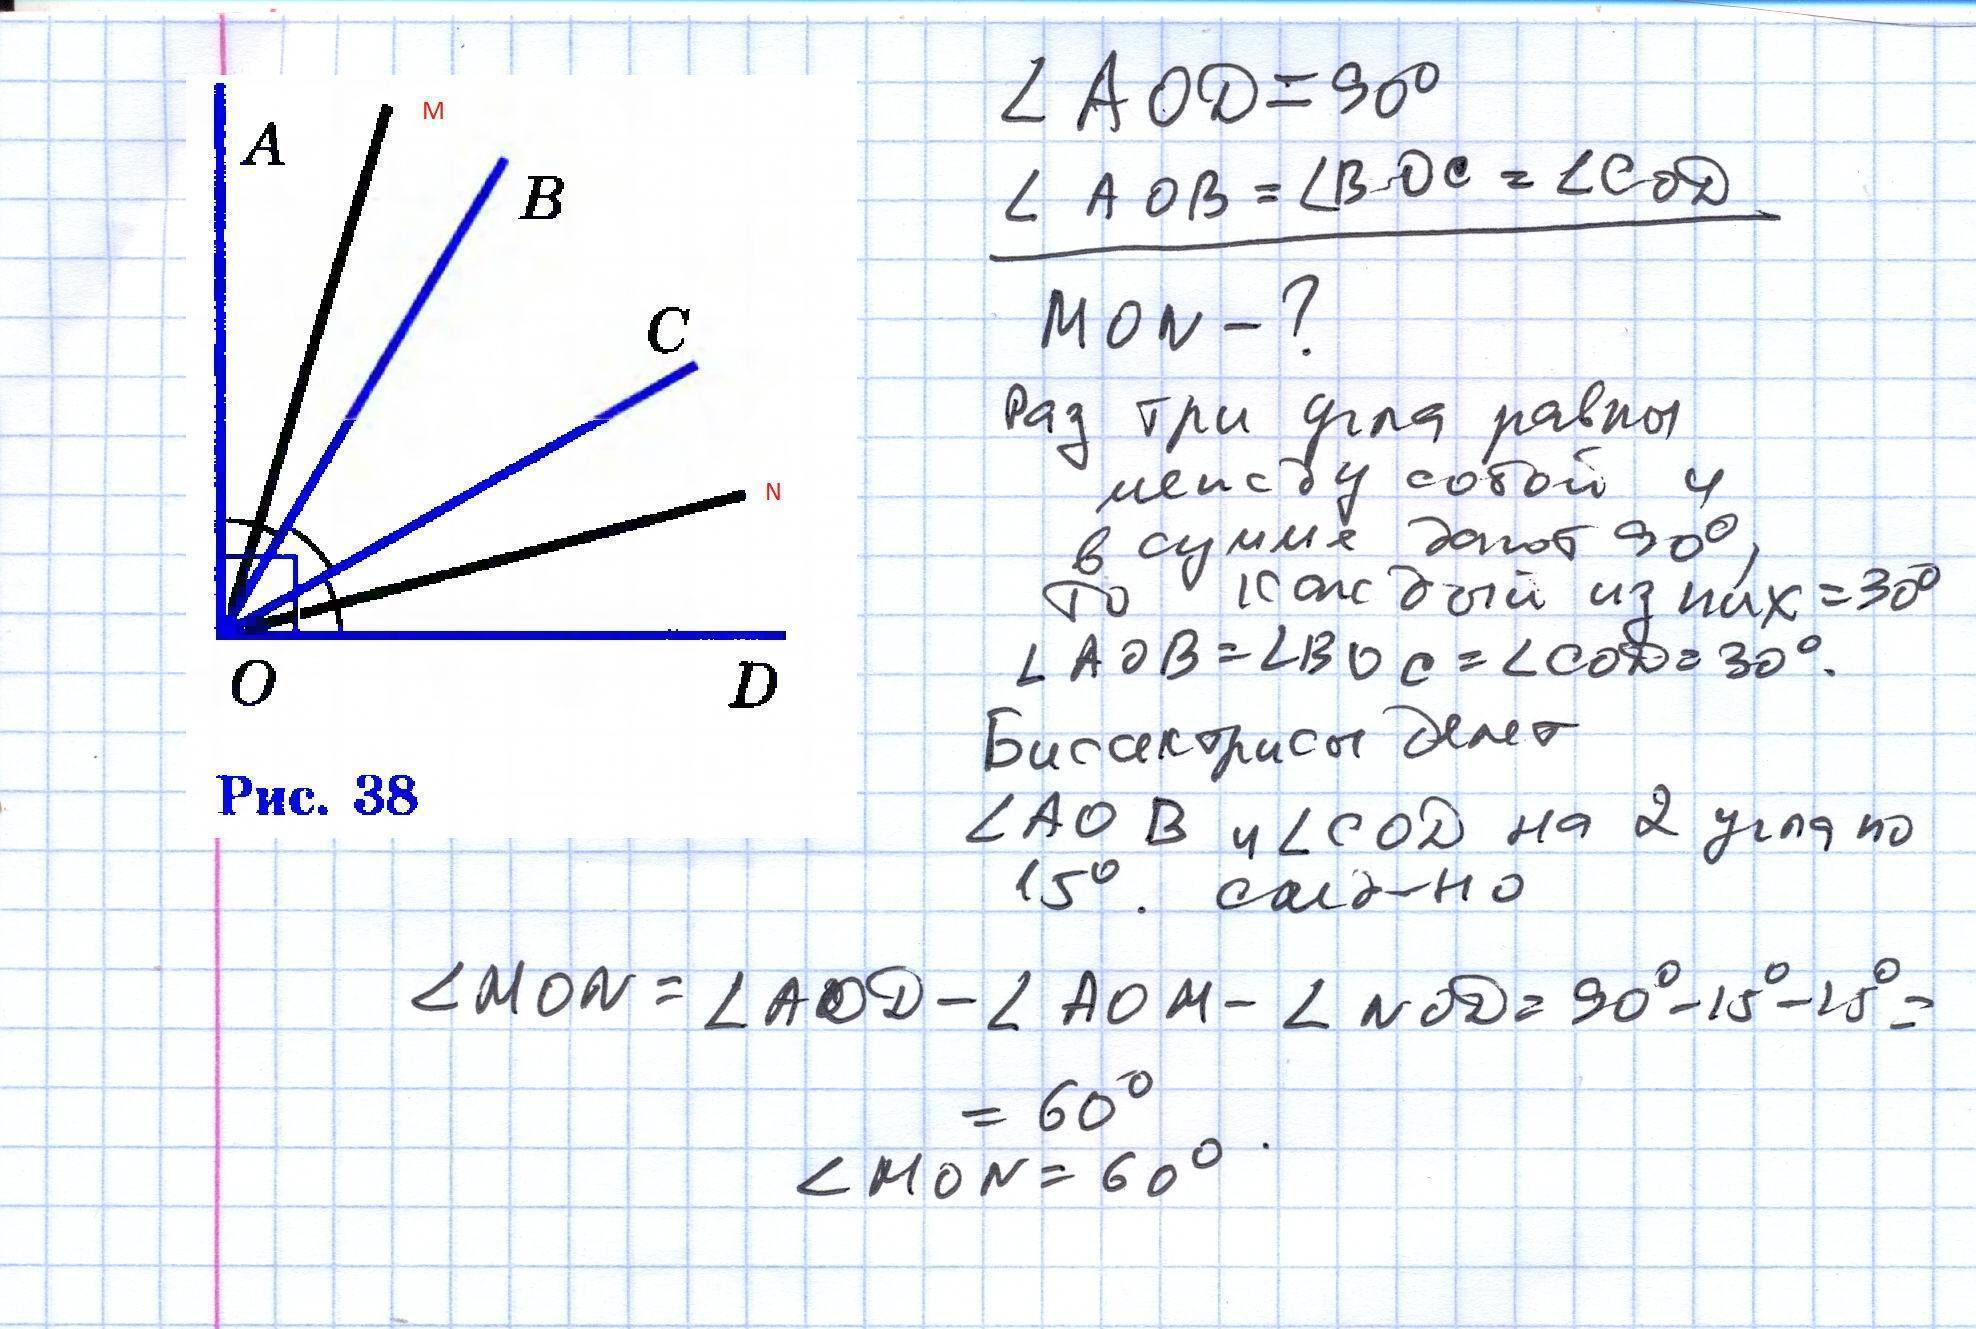 A
M
B
C
N
O
D
Рис. 38
∠AOD=90°
∠AOB=∠BOC=∠COD
MON-?
Раз три угла равны
между собой и
в сумме дают 90°,
то каждый из них=30°
∠AOB=∠BOC=∠COD=30°.
Биссектрисы делят
∠AOB и ∠COD на 2 угла по
15°.
∠MON=∠AOD-∠AOM-∠NOD=90°-15°-15°=
=60°
∠MON=60°.